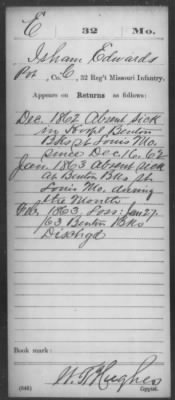 E 32 Mo.
Isham Edwards
Pvt, Co. C, 32 Reg't Missouri Infantry.
Appears on Returns as follows:
Dec 1862 Absent sick
in Hospl Benton
Bks St Louis Mo.
since Dec. 16. 62
Jan. 1863 Absent sick
at Benton Bks St.
Louis Mo. during
the Month
Feb. 1863, Loss: Jan 27.
63 Benton Bks
Dischgd
Book mark:
W. R. Hughes
(646) Copyist.